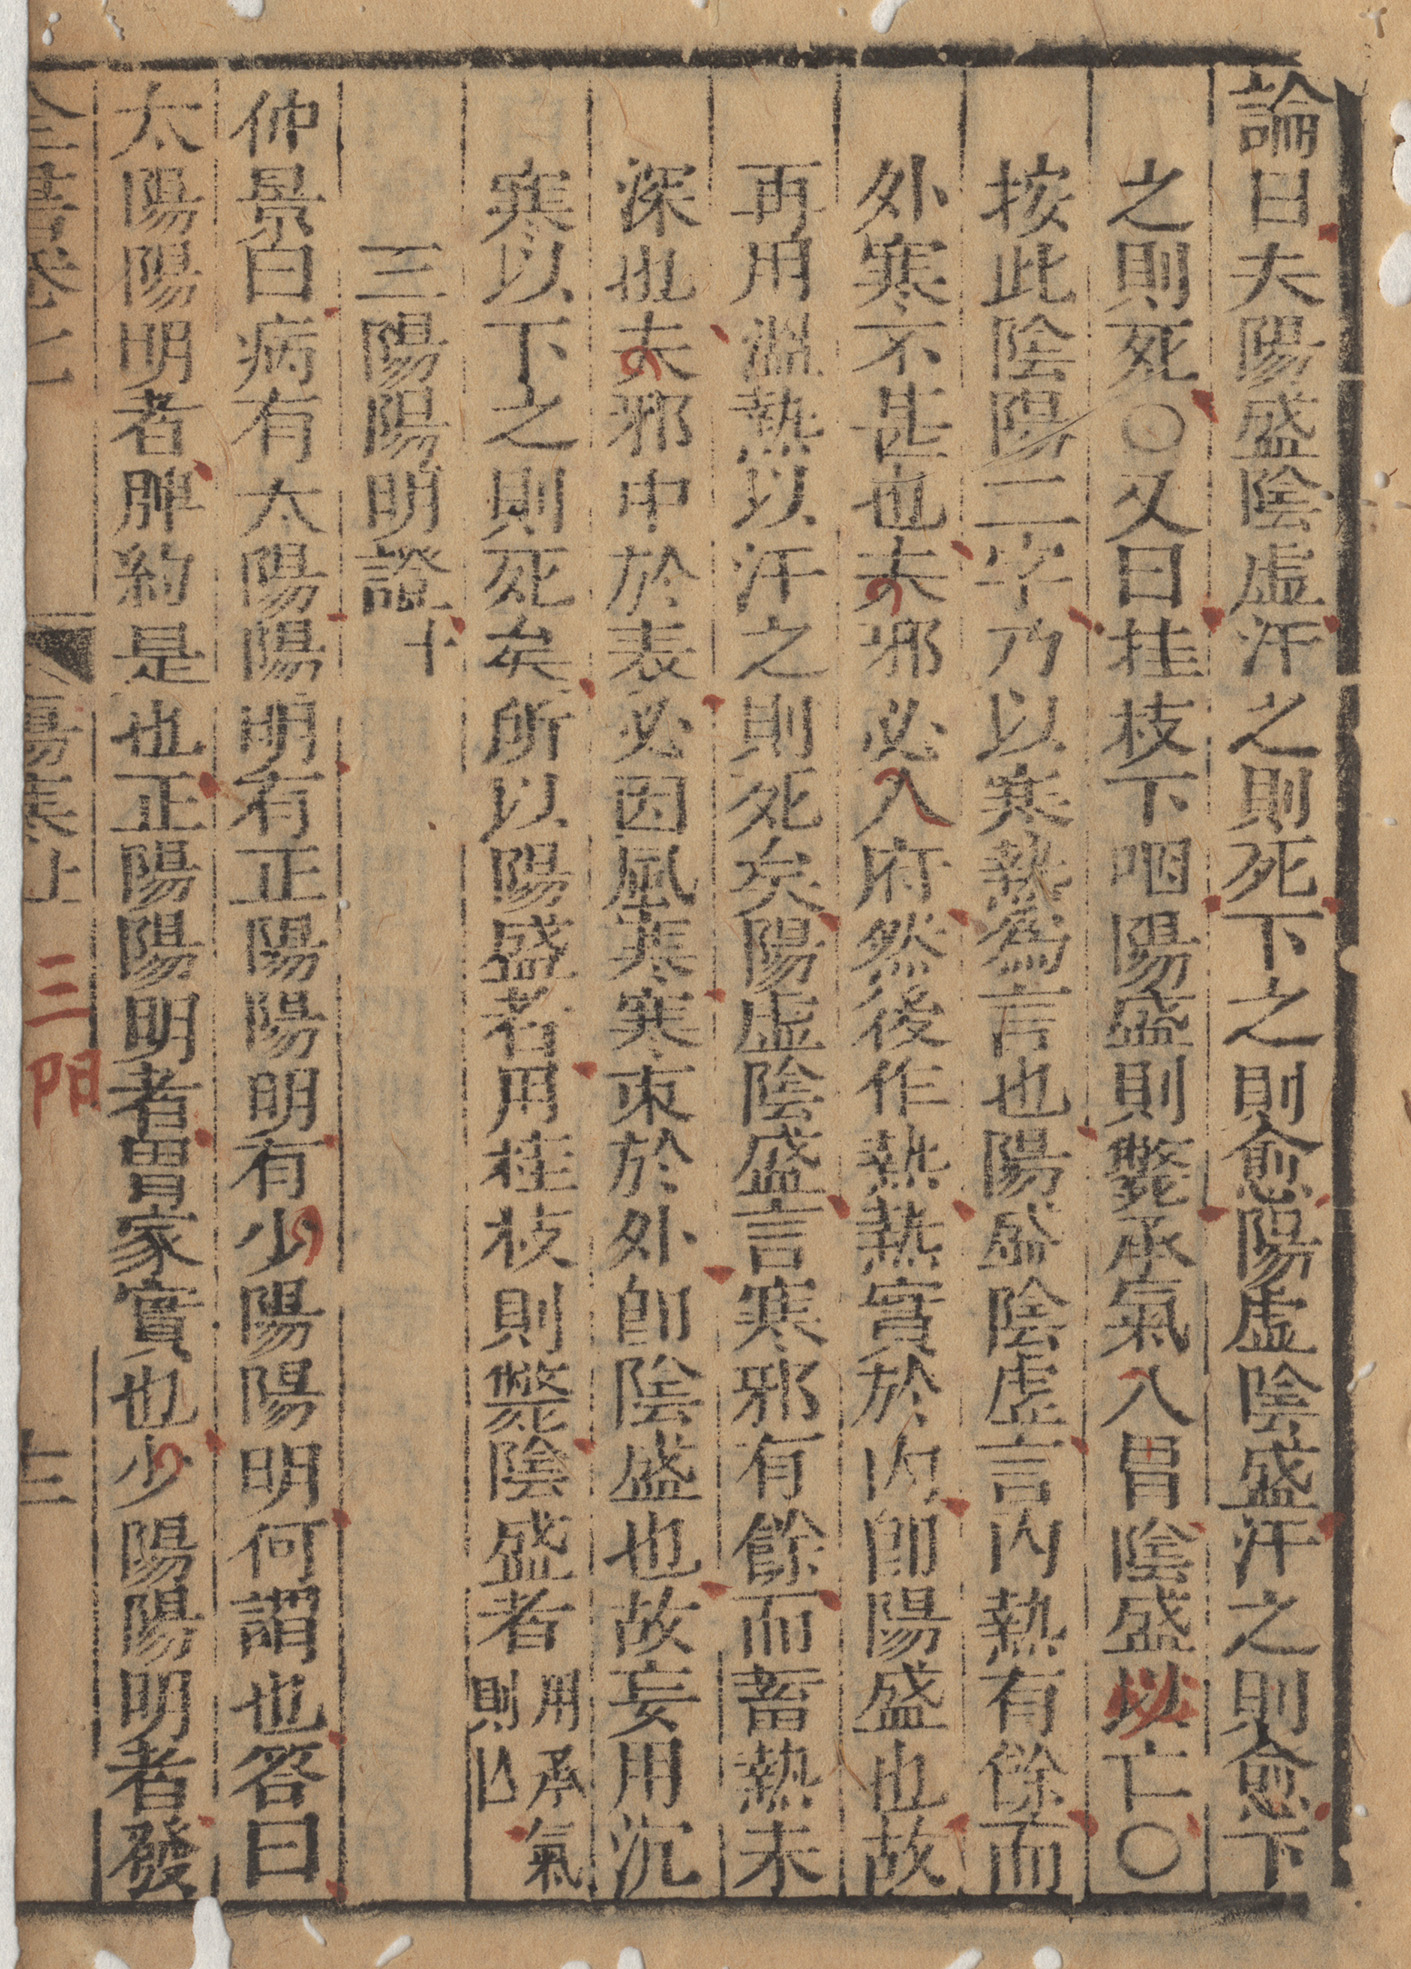 論曰夫陽盛陰虛汗之則死下之則愈陽虛陰盛汗之則愈下
之則死〇又曰桂枝下咽陽盛則斃承氣入胃陰盛以亡〇
按此陰陽二字乃以寒熱為言也陽盛陰虛言內熱有餘而
外寒不甚也夫邪必入府然後作熱熱實於內卽陽盛也故
再用溫熱以汗之則死矣陽虛陰盛言寒邪有餘而蓄熱未
深也夫邪中於表必因風寒寒束於外卽陰盛也故妄用沉
寒以下之則死矣所以陽盛者用桂枝則斃陰盛者用承氣則亡
三陽陽明證十
仲景曰病有太陽陽明有正陽陽明有少陽陽明何謂也答曰
太陽陽明者脾約是也正陽陽明者胃家實也少陽陽明者發
全書卷七
傷寒上
三阳
十三